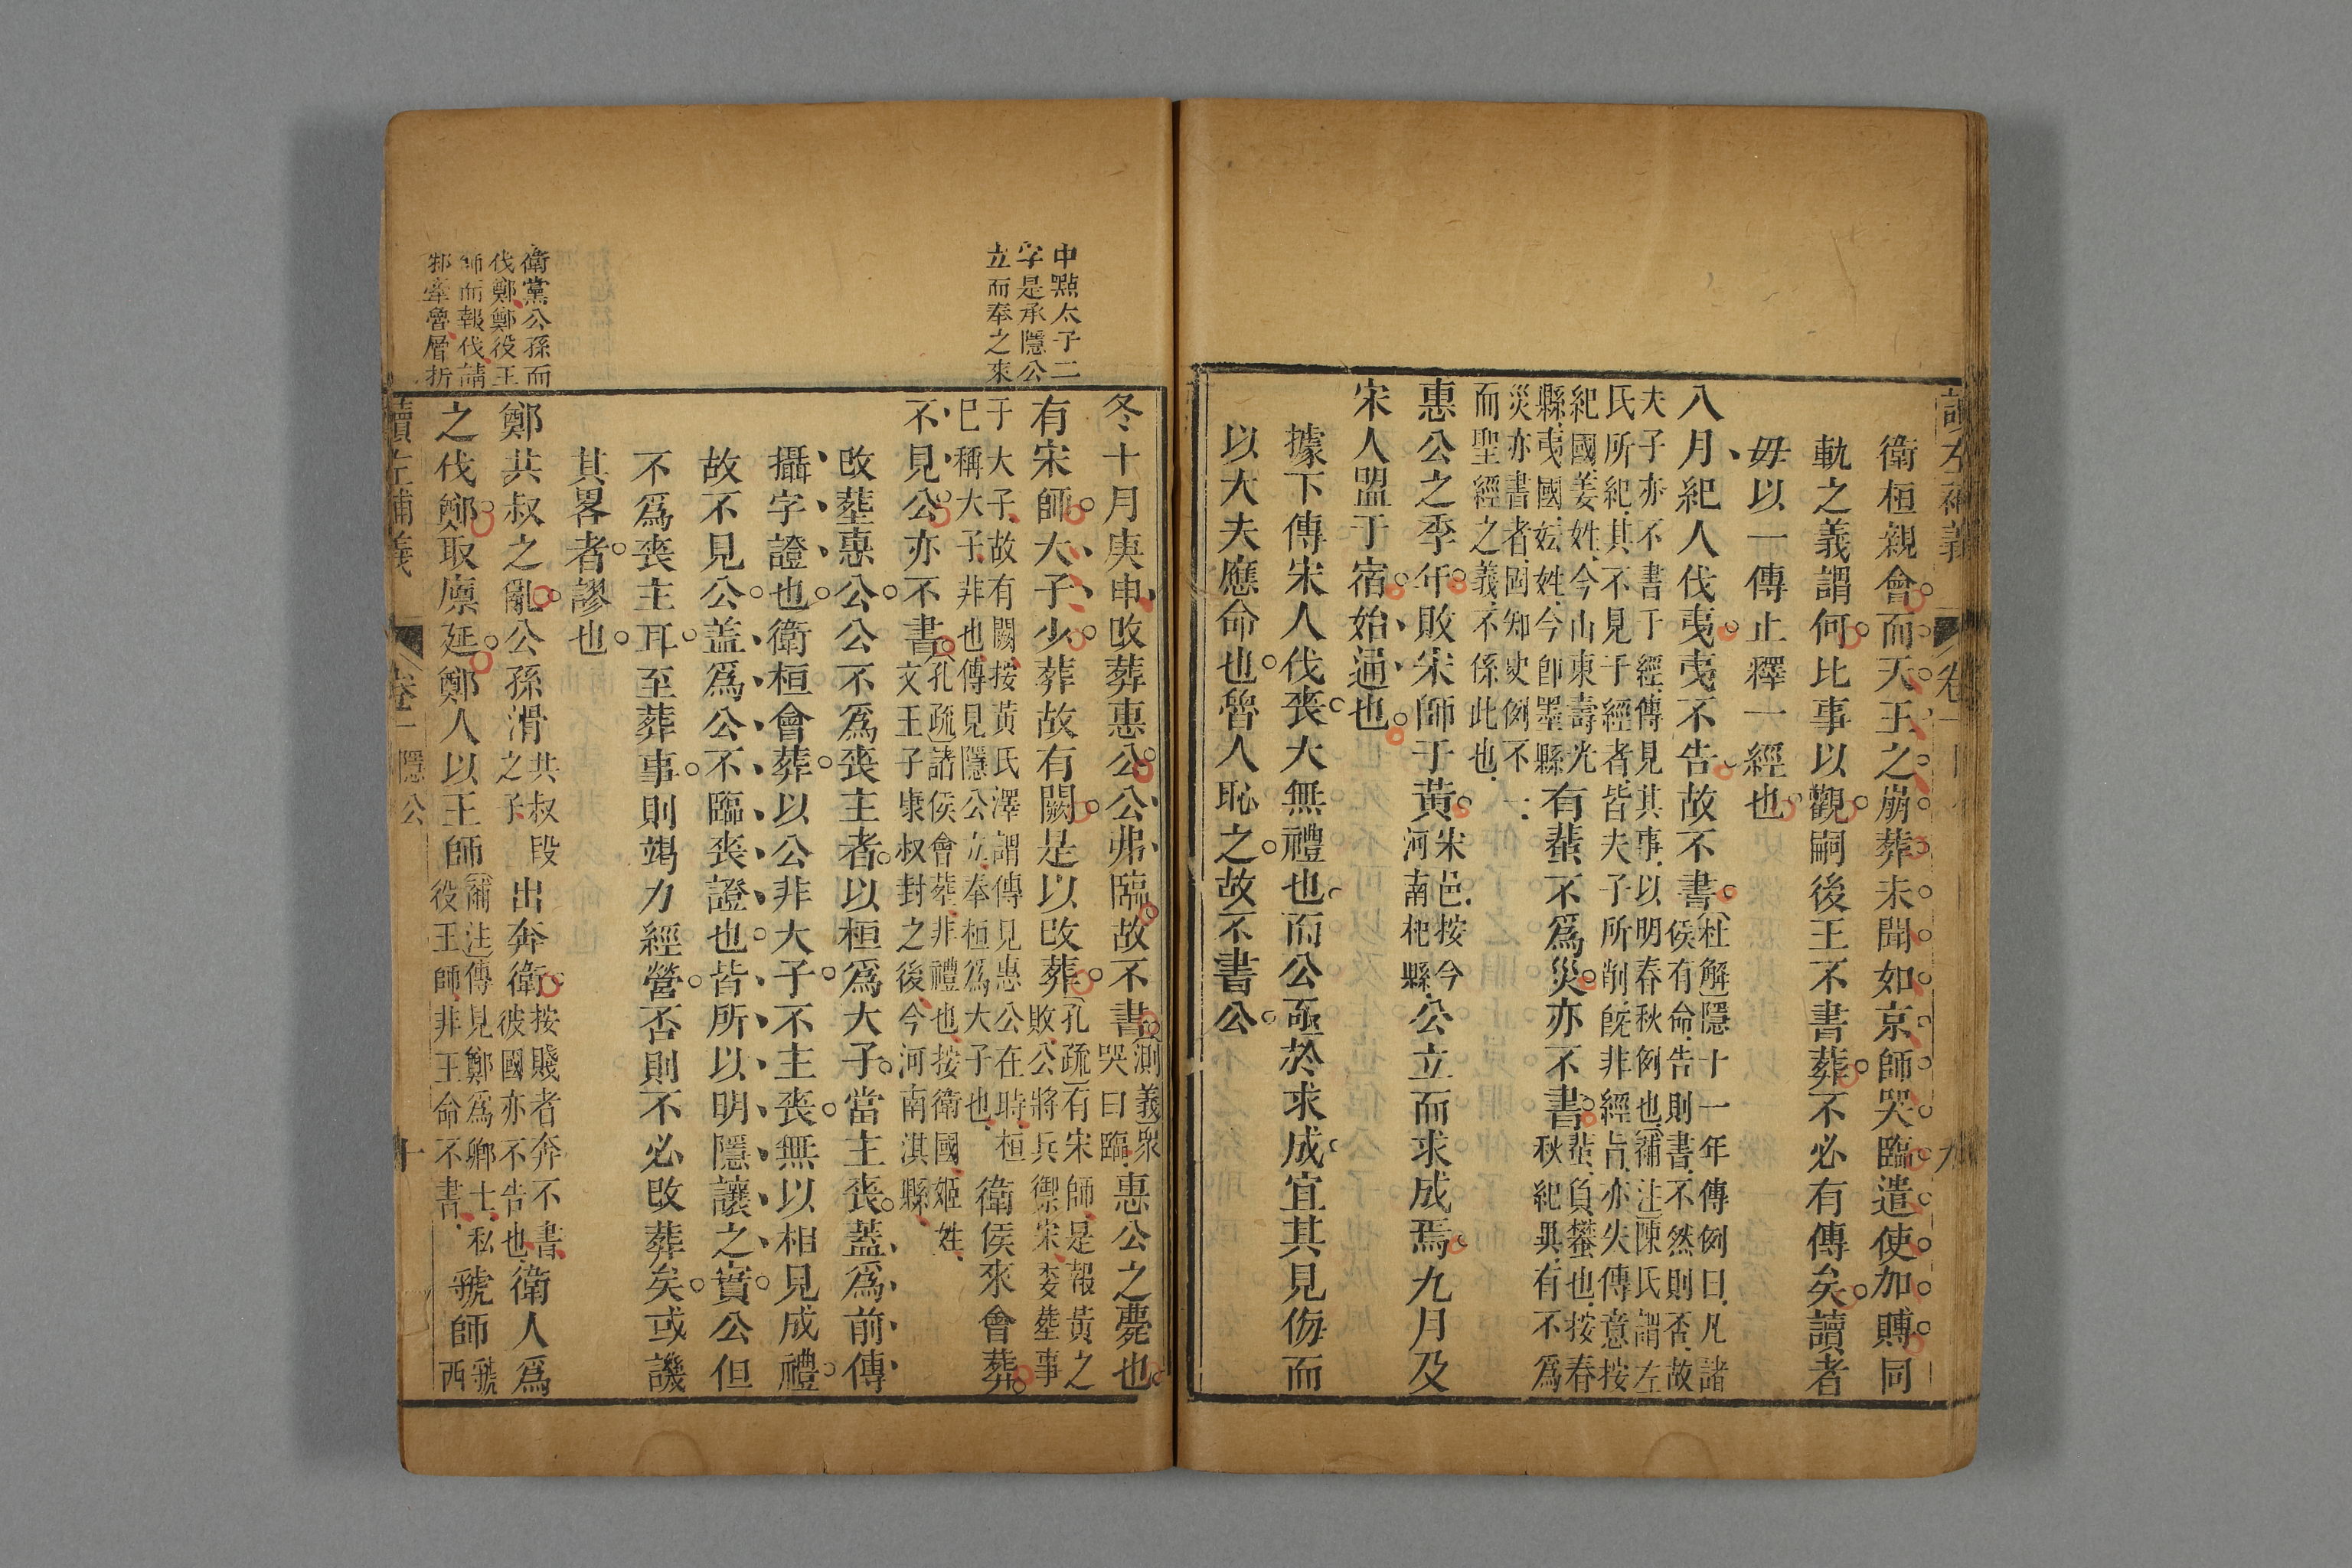 讀左補義 卷一 九
衛桓親會而天王之崩葬未聞如京師哭臨遣使加賻同
軌之義謂何比事以觀嗣後王不書葬不必有傳矣讀者
毋以一傳止釋一經也
八月紀人伐夷夷不告故不書
杜解隱十一年傳例曰凡諸
侯有命告則書不然則否故
夫子亦不書于經傳見其事以明春秋例也補注陳氏謂左
氏所紀其不見于經者皆夫子所削旣非經旨亦失傳意按
紀國姜姓今山東壽光
縣夷國妘姓今卽墨縣
有蜚不爲災亦不書
蜚負蠜也按春
秋紀異有不爲
災亦書者固知史例不一
而聖經之義不係此也
惠公之季年敗宋師于黃
宋邑按今
河南杞縣
公立而求成焉九月及
宋人盟于宿始通也
據下傳宋人伐喪大無禮也而公亟於求成宜其見侮而
以大夫應命也魯人恥之故不書公
中點太子二
字是承隱公
立而奉之來
冬十月庚申改葬惠公公弗臨故不書
測義衆
哭曰臨
惠公之薨也
有宋師大子少葬故有闕是以改葬
孔疏有宋師是報黃之
敗公將兵禦宋委葬事
于大子故有闕按黃氏澤謂傳見惠公在時桓
巳稱大子非也傳見隱公立奉桓爲大子也
衛侯來會葬
不見公亦不書
孔疏諸侯會葬非禮也按衛國姬姓
文王子康叔封之後今河南淇縣
改葬惠公公不爲喪主者以桓爲大子當主喪蓋爲前傳
攝字證也衛桓會葬以公非大子不主喪無以相見成禮
故不見公蓋爲公不臨喪證也皆所以明隱讓之實公但
不爲喪主耳至葬事則竭力經營否則不必改葬矣或譏
其畧者謬也
衛黨公孫而
伐鄭鄭役王
師而報伐請
邾牽魯層折
鄭共叔之亂公孫滑
共叔段
之子
出奔衛
按賤者奔不書
彼國亦不告也
衛人爲
之伐鄭取廩延鄭人以王師
補注傳見鄭爲卿士私
役王師非王命不書
虢師
虢
西
讀左補義 卷一 隱公 十